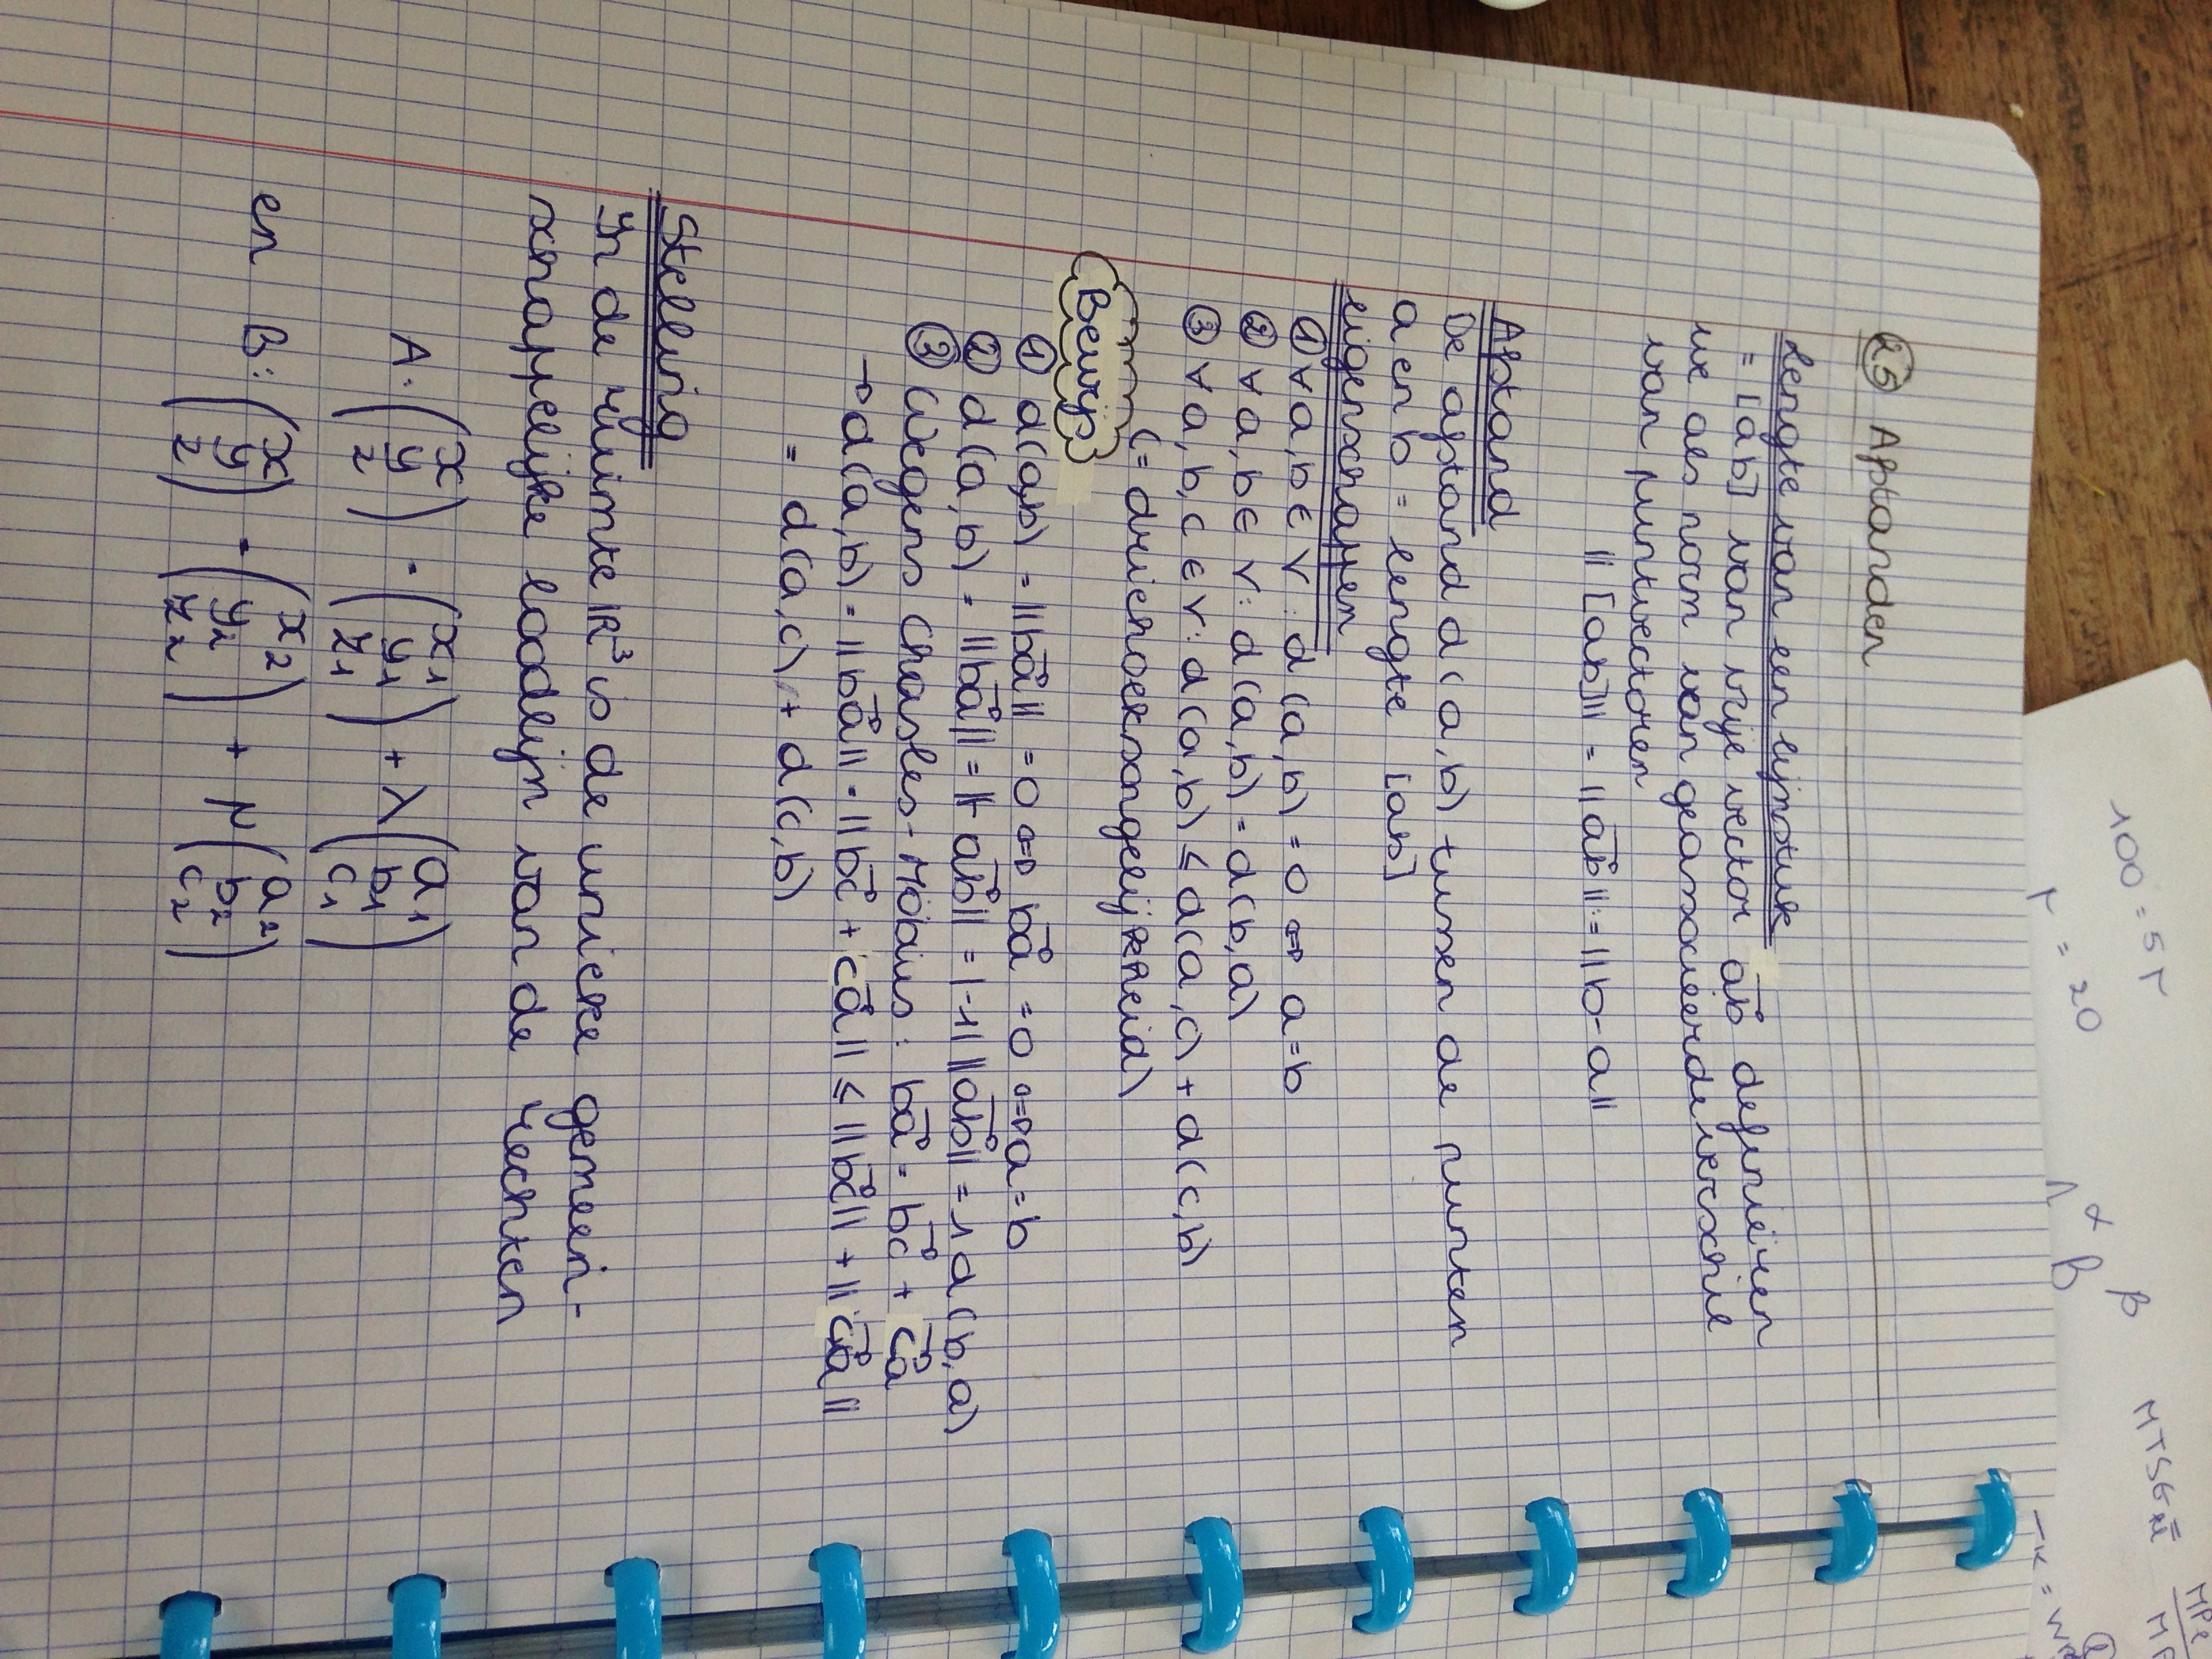 2.5 Afstanden
Lengte van een lijnstuk
= [ab] van vrije vector ab⃗ definiëren
we als norm van geassocieerde verschil
van puntvectoren
||[ab]|| = ||ab⃗|| = ||b-a||
Afstand
De afstand d(a,b) tussen de punten
a en b = lengte [ab]
eigenschappen
① ∀ a,b ∈ V : d(a,b) = 0 ⇔ a=b
② ∀ a,b ∈ V : d(a,b) = d(b,a)
③ ∀ a,b,c ∈ V : d(a,b) ≤ d(a,c) + d(c,b)
(= driehoeksongelijkheid)
Bewijs
① d(a,b) = ||ba⃗|| = 0 ⇔ ba⃗ = 0 ⇔ a=b
② d(a,b) = ||ba⃗|| = ||-ab⃗|| = |-1| ||ab⃗|| = 1 d(b,a)
③ Wegens Chasles-Möbius : ba⃗ = bc⃗ + ca⃗
→ d(a,b) = ||ba⃗|| = ||bc⃗ + ca⃗|| ≤ ||bc⃗|| + ||ca⃗||
= d(a,c) + d(c,b)
Stelling
In de ruimte ℝ³ is de unieke gemeen-
schappelijke loodlijn van de rechten
A: (x y z) = (x₁ y₁ z₁) + λ (a₁ b₁ c₁)
en B: (x y z) = (x₂ y₂ z₂) + μ (a₂ b₂ c₂)
100 = 5r
r = 20
α β
B